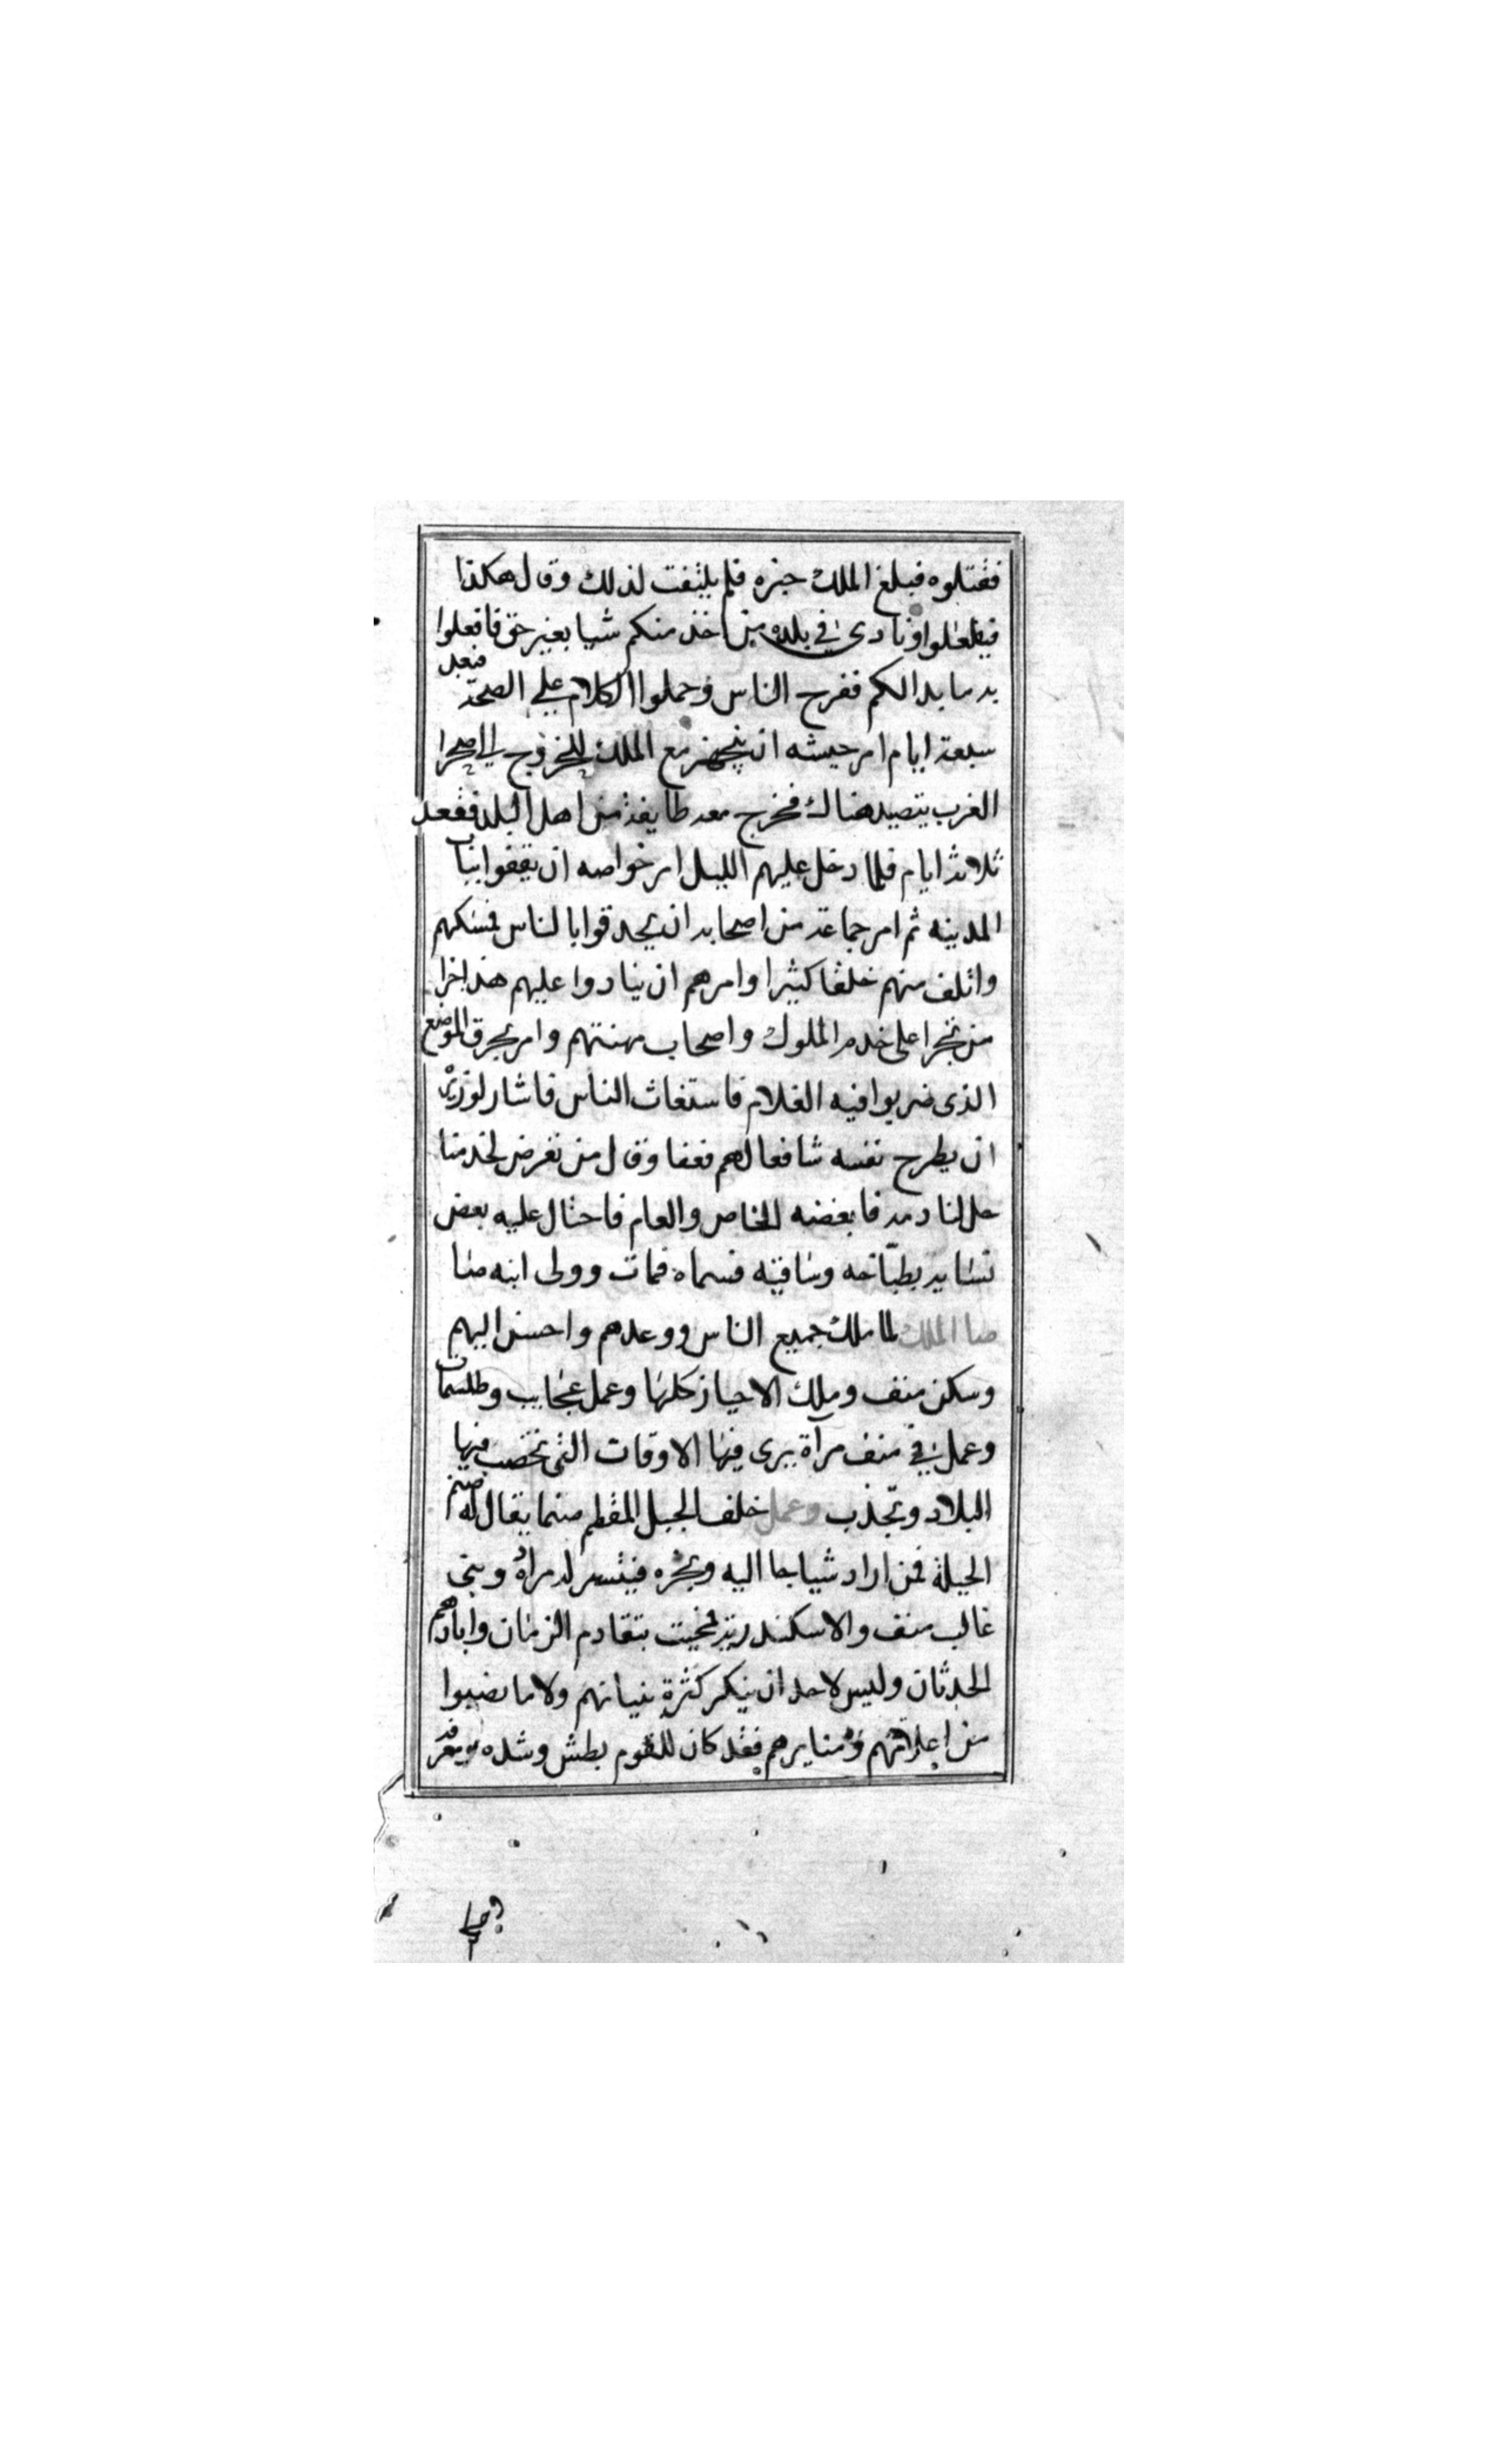 فقتلوه فبلغ الملك خبره فلم يلتفت لذلك وقال هكذا
فيفعلوا ونادى في بلده من اخذ منكم شيا بغير حق فافعلوا
به ما بدا لكم ففرح الناس وحملوا الكلام على الصحة فبعد
سبعة ايام امر جيشه ان يتجهز مع الملك للخروج الى صحرا
الغرب يتصيد هناك فخرج معه طايفة من اهل البلد فقعد
ثلاثة ايام فلما دخل عليهم الليل امر خواصه ان يقفوا بباب
المدينه ثم امر جماعة من اصحابه ان يحدقوا بالناس فمسكهم
واتلف منهم خلقا كثيرا وامرهم ان ينادوا عليهم هذا جزا
من تجرا على خدم الملوك واصحاب مهنتهم وامر بحرق الموضع
الذى ضربوا فيه الغلام فاستغاث الناس فاشار لوزيره
ان يطرح نفسه شافعا لهم فعفا وقال من تعرض لخدمنا
حل لنا دمه فابغضه الخاص والعام فاحتال عليه بعض
نسايه بطباخه وساقيه فسماه فمات وولى ابنه صا
صا الملك لما ملك جميع الناس ووعدهم واحسن اليهم
وسكن منف وملك الاحياز كلها وعمل عجايب وطلسمات
وعمل في منف مرآة يرى فيها الاوقات التى تخصب فيها
البلاد وتجذب وعمل خلف الجبل المقطم صنما يقال له صنم
الحيلة فمن اراد شيا جا اليه وبخره فيتسر له مراده وبنى
غالب منف والاسكندرية فمحيت بتقادم الزمان وابادهم
الحدثان وليس لاحد ان ينكر كثرة بنيانهم ولا ما نصبوا
من اعلامهم ومنايرهم فقد كان للقوم بطش وشده ومعرفه